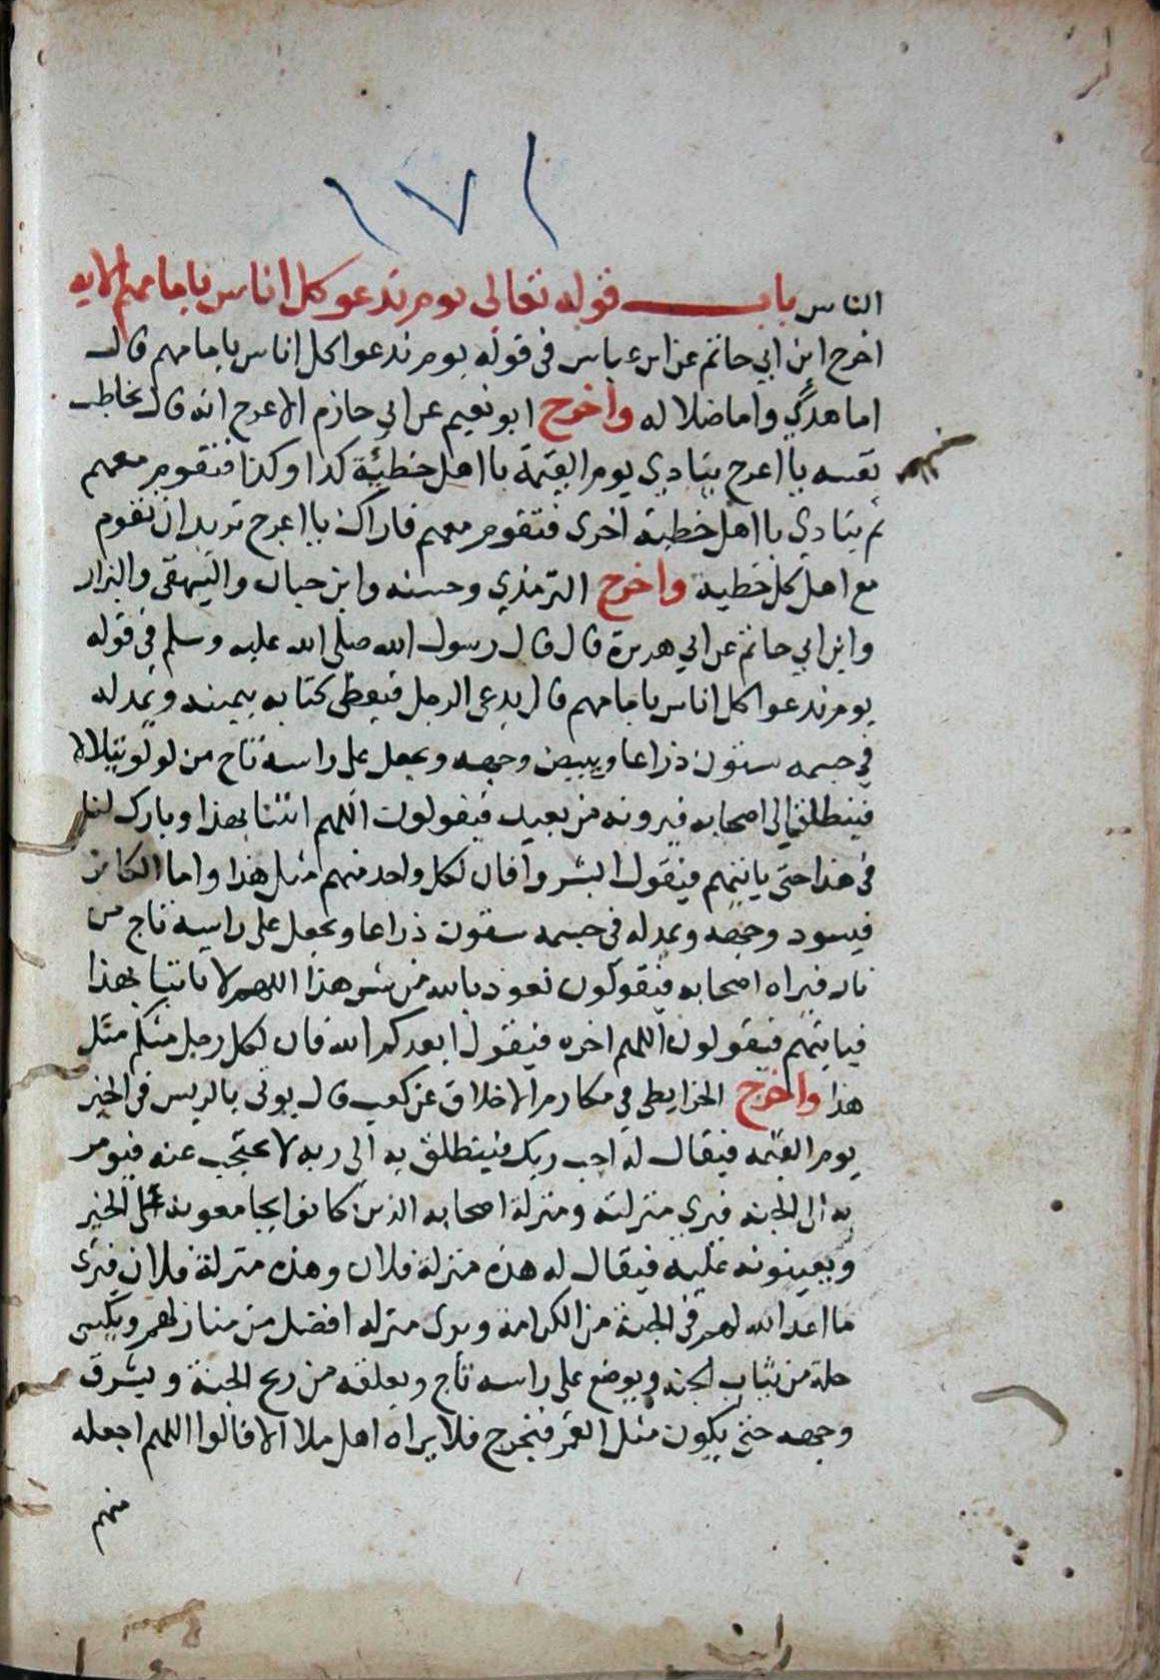 ١٧١
الناس باب قوله تعالى يوم ندعو كل اناس بامامهم الايه
اخرج ابن ابي حاتم عن ابن عباس في قوله يوم ندعوا كل اناس بامامهم قال
امام هدى وامام ضلاله واخرج ابو نعيم عن ابي حازم الاعرج انه قال يخاطب
نفسه يا اعرج ينادي يوم القيمة يا اهل خطيئة كذا وكذا فتقوم معهم
ثم ينادي يا اهل خطية اخرى فتقوم معهم فاراك يا اعرج تريد ان تقوم
مع اهل كل خطيه واخرج الترمذي وحسنه وابن حبان والبيهقي والبزار
وابن ابي حاتم عن ابي هريرة قال قال رسول الله صلى الله عليه وسلم في قوله
يوم ندعوا كل اناس بامامهم قال يدعى الرجل فيعطى كتابه بيمينه ويمد له
في جسمه ستون ذراعا ويبيض وجهه ويجعل على راسه تاج من لولو يتلالا
فينطلق الى اصحابه فيرونه من بعيد فيقولون اللهم ائتنا بهذا وبارك لنا
في هذا حتى ياتيهم فيقول ابشروا فان لكل واحد منهم مثل هذا واما الكافر
فيسود وجهه ويمد له في جسمه ستون ذراعا ويجعل على راسه تاج من
نار فيراه اصحابه فيقولون نعوذ بالله من شر هذا اللهم لا تاتنا بهذا
فياتيهم فيقولون اللهم اخره فيقول ابعدكم الله فان لكل رجل منكم مثل
هذا واخرج الخرايطي في مكارم الاخلاق عن كعب قال يوتى بالريس في الخير
يوم القيمه فيقال له اجب ربك فينطلق به الى ربه لا يحتجب عنه فيومر
به الى الجنه فيرى منزلته ومنزلة اصحابه الذين كانوا يجامعونه على الخير
ويعينونه عليه فيقال له هذه منزلة فلان وهذه منزلة فلان فيرى
ما اعد الله لهم في الجنة من الكرامة ويرى منزله افضل من منازلهم ويكسى
حلة من ثياب الجنه ويوضع على راسه تاج ويعلقه من ريح الجنة ويشرق
وجهه حتى يكون مثل القمر فيخرج فلا يراه اهل ملا الا قالوا اللهم اجعله
منهم